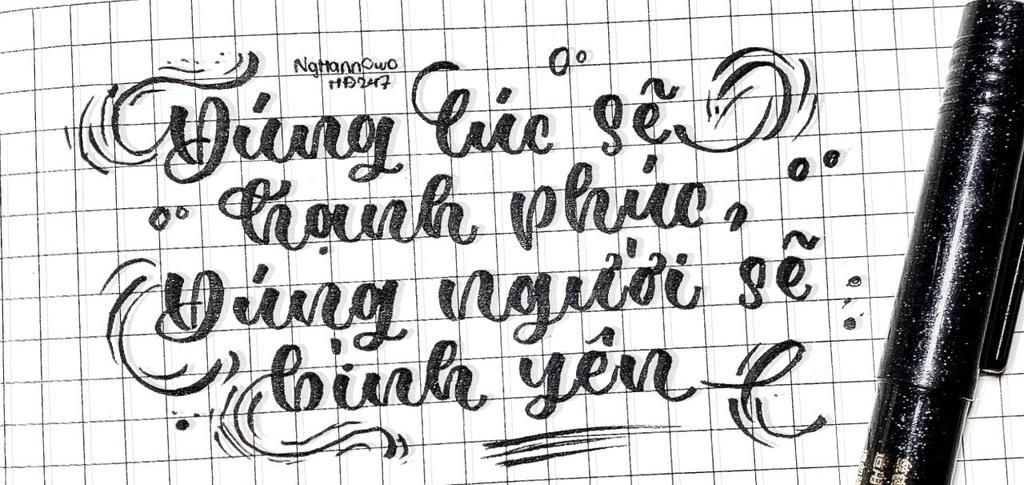 NgHannOwo
HB247
Đúng lúc sẽ
hạnh phúc,
Đúng người sẽ
bình yên